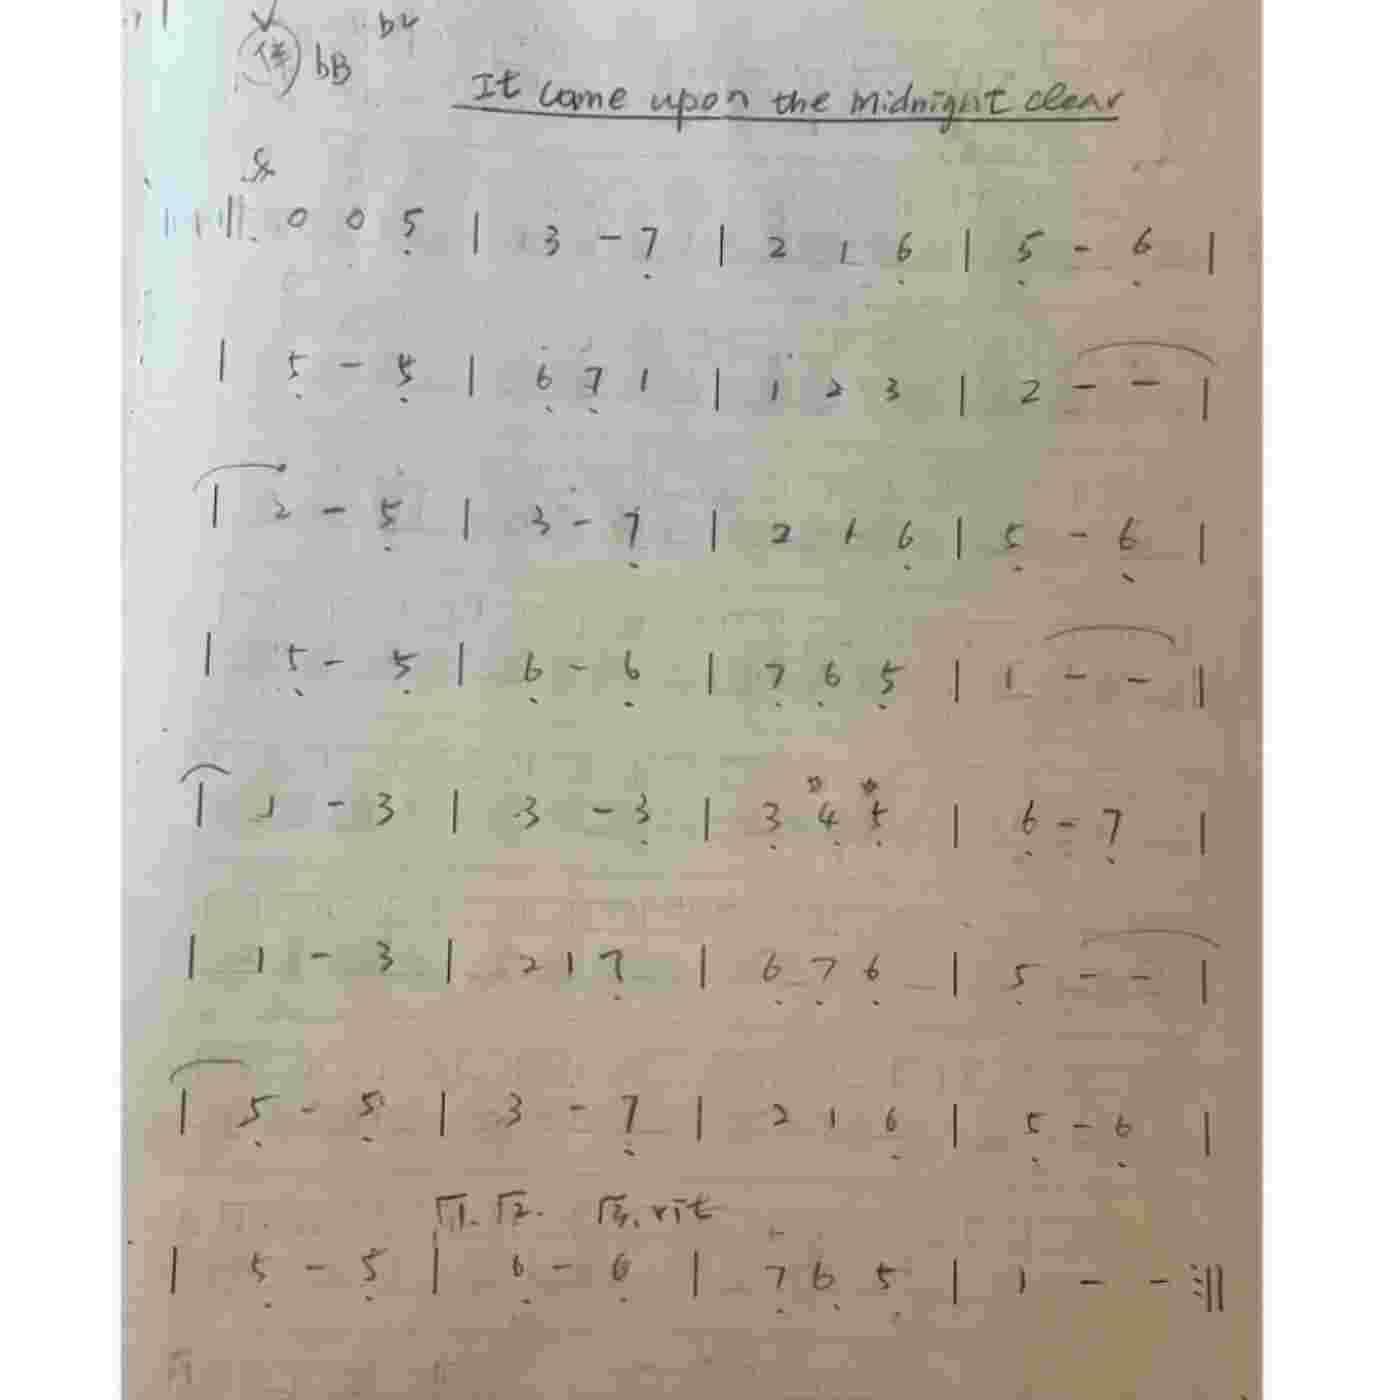 b4
伴 bB
It came upon the midnight clear
0 0 5 | 3 - 7 | 2 1 6 | 5 - 6 |
| 5 - 5 | 6 7 1 | 1 2 3 | 2 - - |
| 2 - 5 | 3 - 7 | 2 1 6 | 5 - 6 |
| 5 - 5 | 6 - 6 | 7 6 5 | 1 - - ||
| 1 - 3 | 3 - 3 | 3 4 5 | 6 - 7 |
| 1 - 3 | 2 1 7 | 6 7 6 | 5 - - |
| 5 - 5 | 3 - 7 | 2 1 6 | 5 - 6 |
1. 2. 3. rit
| 5 - 5 | 6 - 6 | 7 6 5 | 1 - - :||